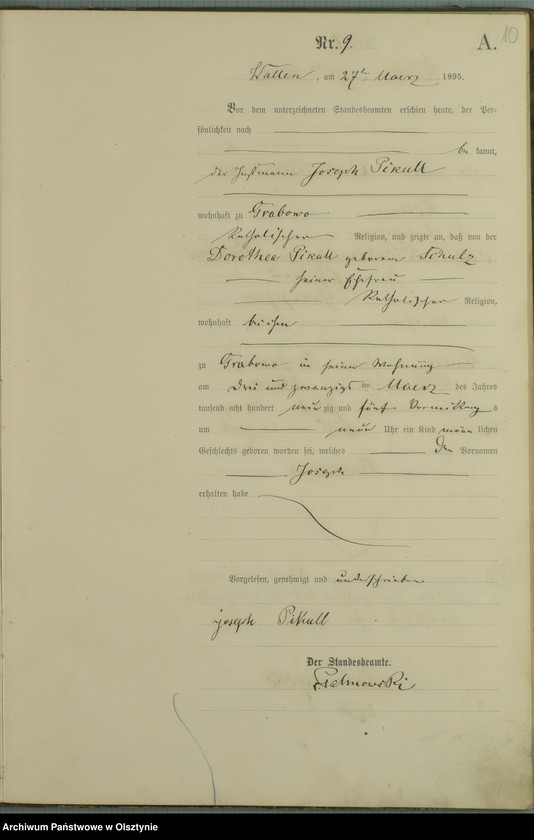 10
Nr. 9. A.
Wallen, am 27ten Maerz 1895.
Vor dem unterzeichneten Standesbeamten erschien heute, der Per-
sönlichkeit nach
be kannt,
der Instmann Joseph Pikull
wohnhaft zu Grabowo
Katholischer Religion, und zeigte an, daß von der
Dorothea Pikull geborene Schulz
seiner Ehefrau
Katholischer Religion,
wohnhaft bei ihm
zu Grabowo in seiner Wohnung
am drei und zwanzigs ten Maerz des Jahres
tausend acht hundert neun zig und fünf Vormittag s
um neun Uhr ein Kind männ lichen
Geschlechts geboren worden sei, welches den Vornamen
Joseph
erhalten habe
Vorgelesen, genehmigt und unterschrieben
joseph Pikull
Der Standesbeamte.
Archiwum Państwowe w Olsztynie